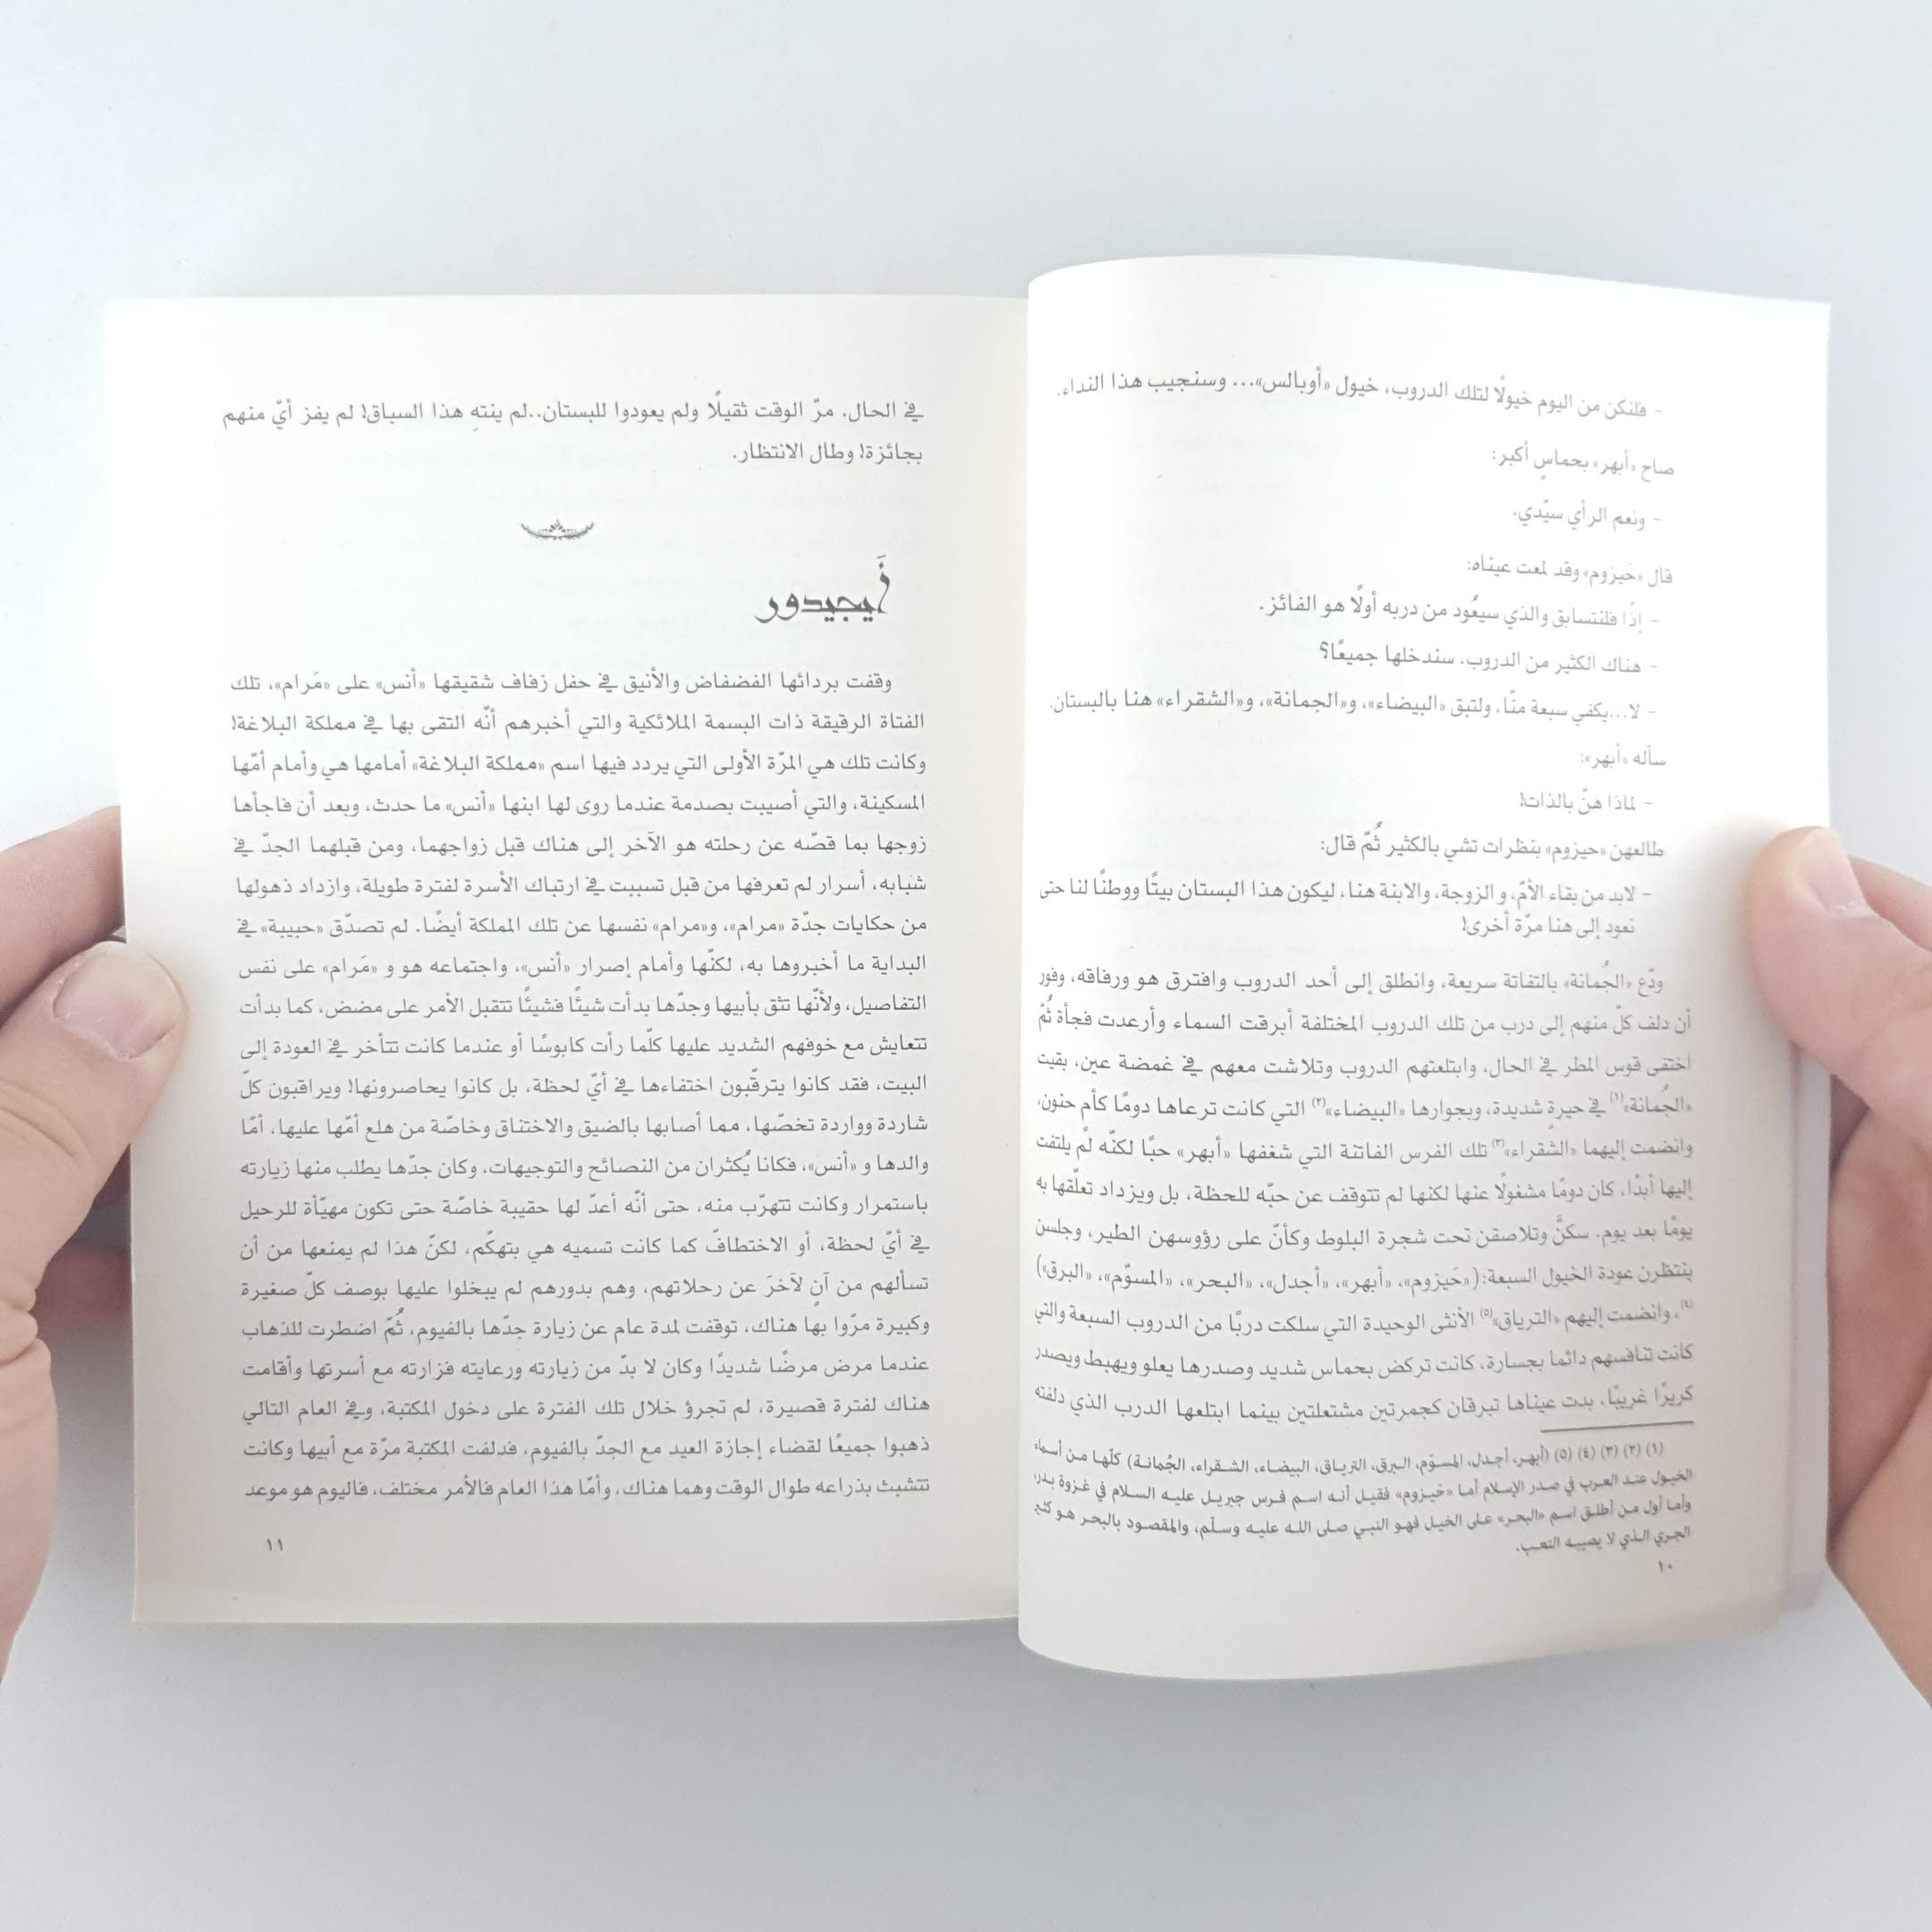 - فلنكن من اليوم خيولًا لتلك الدروب، خيول «أوبالس»... وسنجيب هذا النداء.
صاح «أبهر» بحماسٍ أكبر:
- ونعم الرأي سيّدي.
قال «حَيزوم» وقد لمعت عيناه:
- إذًا فلنتسابق والذي سيعُود من دربه أولًا هو الفائز.
- هناك الكثير من الدروب، سندخلها جميعًا؟
- لا...يكفي سبعة منّا، ولتبق «البيضاء»، و«الجمانة»، و«الشقراء» هنا بالبستان.
سأله «أبهر»:
- لماذا هنّ بالذات!
طالعهن «حيزوم» بنظرات تشي بالكثير ثُمّ قال:
- لابد من بقاء الأمّ، و الزوجة، والابنة هنا، ليكون هذا البستان بيتًا ووطنًا لنا حتى
نعود إلى هنا مرّة أخرى!
ودّع «الجُمانة» بالتفاتة سريعة، وانطلق إلى أحد الدروب وافترق هو ورفاقه، وفور
أن دلف كلّ منهم إلى درب من تلك الدروب المختلفة أبرقت السماء وأرعدت فجأة ثُمّ
اختفى قوس المطر في الحال، وابتلعتهم الدروب وتلاشت معهم في غمضة عين، بقيت
«الجُمانة»(١) في حيرةٍ شديدة، وبجوارها «البيضاء»(٢) التي كانت ترعاها دومًا كأم حنون،
وانضمت إليهما «الشقراء»(٣) تلك الفرس الفاتنة التي شغفها «أبهر» حبًا لكنّه لم يلتفت
إليها أبدًا، كان دومًا مشغولًا عنها لكنها لم تتوقف عن حبّه للحظة، بل ويزداد تعلّقها به
يومًا بعد يوم. سكنَّ وتلاصقن تحت شجرة البلوط وكأنّ على رؤوسهن الطير، وجلسن
ينتظرن عودة الخيول السبعة:(«حَيزوم»، «أبهر»، «أجدل»، «البحر»، «المسوّم»، «البرق»)
(٤)، وانضمت إليهم «الترياق»(٥) الأنثى الوحيدة التي سلكت دربًا من الدروب السبعة والتي
كانت تنافسهم دائما بجسارة، كانت تركض بحماس شديد وصدرها يعلو ويهبط ويصدر
كريرًا غريبًا، بدت عيناها تبرقان كجمرتين مشتعلتين بينما ابتلعها الدرب الذي دلفته
(١) (٢) (٣) (٤) (٥) (أبهر، أجدل، المسوّم، البرق، الترياق، البيضاء، الشقراء، الجُمانة) كلّها من أسماء
الخيول عند العرب في صدر الإسلام أما «حَيزوم» فقيل أنه اسم فرس جبريل عليه السلام في غزوة بدر،
وأما أول من أطلق اسم «البحر» على الخيل فهو النبي صلى الله عليه وسلّم، والمقصود بالبحر هو كثير
الجري الذي لا يصيبه التعب.
١٠
في الحال. مرّ الوقت ثقيلًا ولم يعودوا للبستان..لم ينتهِ هذا السباق! لم يفز أيّ منهم
بجائزة! وطال الانتظار.
أَيجيدور
وقفت بردائها الفضفاض والأنيق في حفل زفاف شقيقها «أنس» على «مَرام»، تلك
الفتاة الرقيقة ذات البسمة الملائكية والتي أخبرهم أنّه التقى بها في مملكة البلاغة!
وكانت تلك هي المرّة الأولى التي يردد فيها اسم «مملكة البلاغة» أمامها هي وأمام أمّها
المسكينة، والتي أصيبت بصدمة عندما روى لها ابنها «أنس» ما حدث، وبعد أن فاجأها
زوجها بما قصّه عن رحلته هو الآخر إلى هناك قبل زواجهما، ومن قبلهما الجدّ في
شبابه، أسرار لم تعرفها من قبل تسببت في ارتباك الأسرة لفترة طويلة، وازداد ذهولها
من حكايات جدّة «مرام»، و«مرام» نفسها عن تلك المملكة أيضًا. لم تصدّق «حبيبة» في
البداية ما أخبروها به، لكنّها وأمام إصرار «أنس»، واجتماعه هو و «مَرام» على نفس
التفاصيل، ولأنّها تثق بأبيها وجدّها بدأت شيئًا فشيئًا تتقبل الأمر على مضض، كما بدأت
تتعايش مع خوفهم الشديد عليها كلّما رأت كابوسًا أو عندما كانت تتأخر في العودة إلى
البيت، فقد كانوا يترقّبون اختفاءها في أيّ لحظة، بل كانوا يحاصرونها! ويراقبون كلّ
شاردة وواردة تخصّها، مما أصابها بالضيق والاختناق وخاصّة من هلع أمّها عليها، أمّا
والدها و «أنس»، فكانا يُكثران من النصائح والتوجيهات، وكان جدّها يطلب منها زيارته
باستمرار وكانت تتهرّب منه، حتى أنّه أعدّ لها حقيبة خاصّة حتى تكون مهيّأة للرحيل
في أيّ لحظة، أو الاختطافّ كما كانت تسميه هي بتهكّم، لكنّ هذا لم يمنعها من أن
تسألهم من آنٍ لآخرَ عن رحلاتهم، وهم بدورهم لم يبخلوا عليها بوصف كلّ صغيرة
وكبيرة مرّوا بها هناك، توقفت لمدة عام عن زيارة جدّها بالفيوم، ثُمّ اضطرت للذهاب
عندما مرض مرضًا شديدًا وكان لا بدّ من زيارته ورعايته فزارته مع أسرتها وأقامت
هناك لفترة قصيرة، لم تجرؤ خلال تلك الفترة على دخول المكتبة، وفي العام التالي
ذهبوا جميعًا لقضاء إجازة العيد مع الجدّ بالفيوم، فدلفت المكتبة مرّة مع أبيها وكانت
تتشبث بذراعه طوال الوقت وهما هناك، وأمّا هذا العام فالأمر مختلف، فاليوم هو موعد
١١